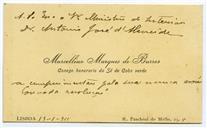 A S. Exª o Sr. Ministro do Interior
Dr. Antonio José d'Almeida
Marcellino Marques de Barros
Conego honorario da Sé de Cabo verde
a cumprimentar pela sua
LISBOA
R. Paschoal de Mello,